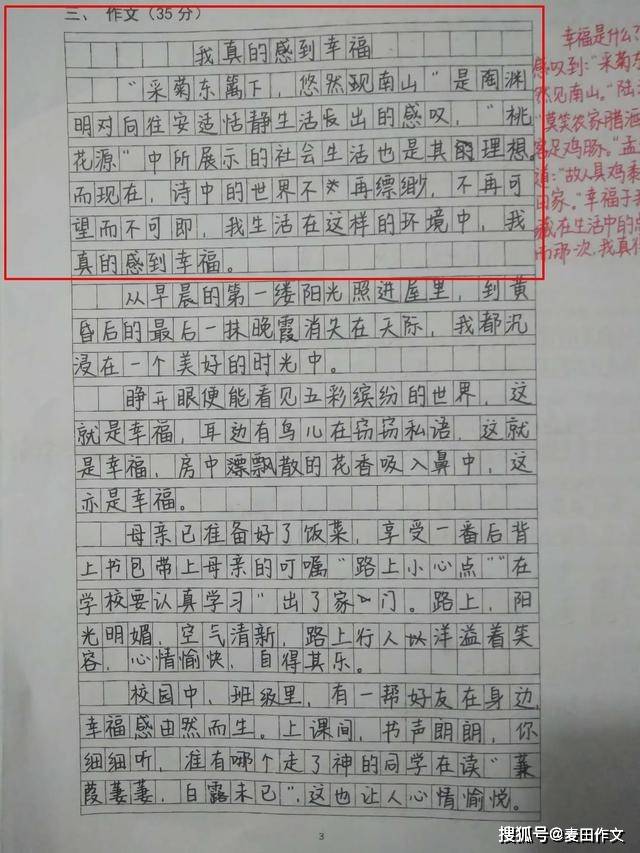 三、作文(35分)
我真的感到幸福
“采菊东篱下，悠然现南山”是陶渊
明对向往安适恬静生活发出的感叹，“桃
花源”中所展示的社会生活也是其的理想。
而现在，诗中的世界不再缥缈，不再可
望而不可即，我生活在这样的环境中，我
真的感到幸福。
从早晨的第一缕阳光照进屋里，到黄
昏后的最后一抹晚霞消失在天际，我都沉
浸在一个美好的时光中。
睁开眼便能看见五彩缤纷的世界，这
就是幸福，耳边有鸟儿在窃窃私语，这就
是幸福，房中飘散的花香吸入鼻中，这
亦是幸福。
母亲已准备好了饭菜，享受一番后背
上书包带上母亲的叮嘱“路上小心点”“在
学校要认真学习”出了家门。路上，阳
光明媚，空气清新，路上行人以洋溢着笑
容，心情愉快，自得其乐。
校园中，班级里，有一帮好友在身边，
幸福感由然而生。上课间，书声朗朗，你
细细听，准有哪个走了神的同学在读“蒹
葭萋萋，白露未已”，这也让人心情愉悦。
幸福是什么？
感叹到：“采菊东
然见南山。”陆
“莫笑农家腊酒
客足鸡豚。”孟
道：“故人具鸡黍
田家。”幸福于我
藏在生活中的点
而那次，我真得
3
搜狐号@麦田作文